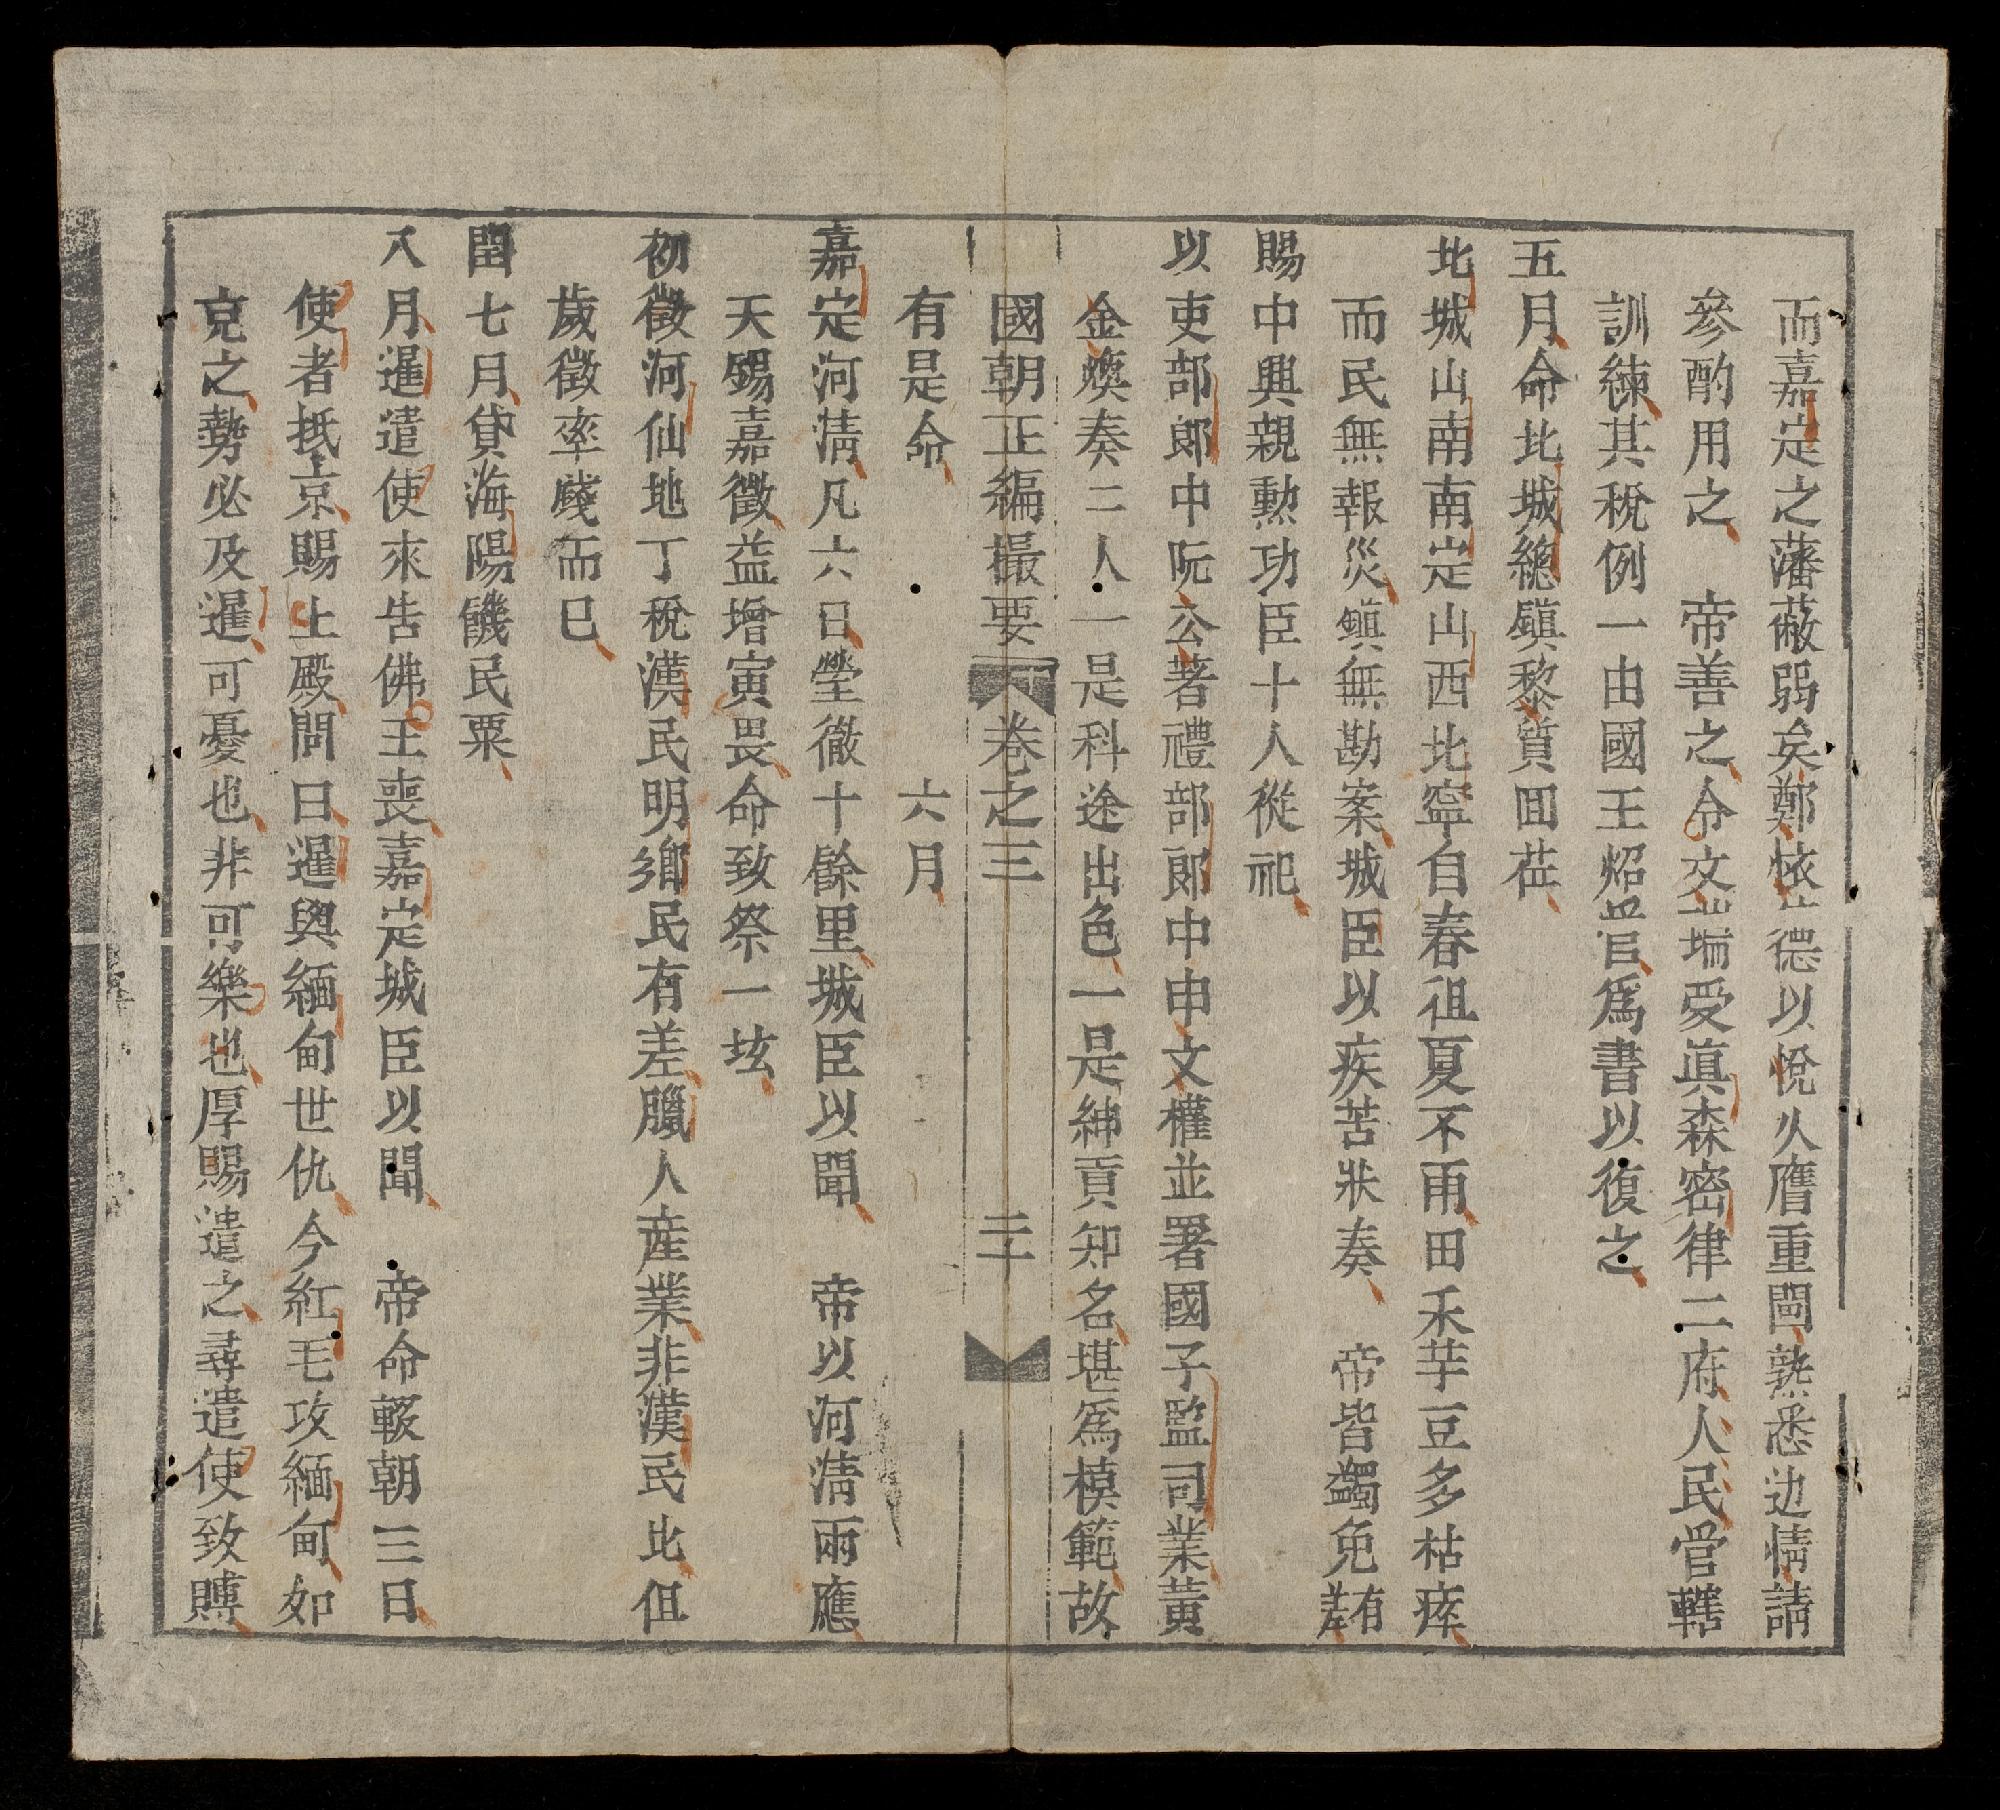 而嘉定之藩蔽弱矣鄭恠德以悅久膺重閫熟悉边情請
參酌用之　帝善之令文瑞受眞森密律二府人民管轄
訓練其稅例一由國王炤爲書以復之
五月命北城總鎮黎質回莅
北城山南南定山西北寧自春徂夏不雨田禾芋豆多枯瘁
而民無報災鎮無勘案城臣以疾苦狀奏　帝皆蠲免有差
賜中興親勲功臣十人從祀
以吏部郎中阮公著禮部郎中申文權並署國子監司業黃
金煥奏二人一是科途出色一是紳貢知名堪爲模範故
國朝正編撮要　卷之三　二十
有是命　六月
嘉定河清凡六日瑩徹十餘里城臣以聞　帝以河清兩應
天錫嘉徵益增寅畏命致祭一坛
初徵河仙地丁稅漢民明鄉民有差臘人產業非漢民比但
歲徵率錢而已
閏七月貸海陽饑民粟
八月暹遣使來告佛王喪嘉定城臣以聞　帝命輟朝三日
使者抵京賜上殿問曰暹與緬甸世仇今紅毛攻緬甸如
克之勢必及暹可憂也非可樂也厚賜遣之尋遣使致賻